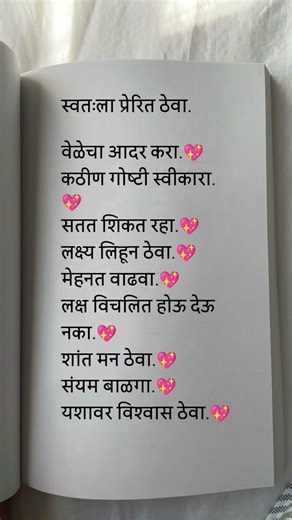 स्वतःला प्रेरित ठेवा.
वेळेचा आदर करा.💖
कठीण गोष्टी स्वीकारा.
💖
सतत शिकत रहा.💖
लक्ष्य लिहून ठेवा.💖
मेहनत वाढवा.💖
लक्ष विचलित होऊ देऊ
नका.💖
शांत मन ठेवा.💖
संयम बाळगा.💖
यशावर विश्वास ठेवा.💖